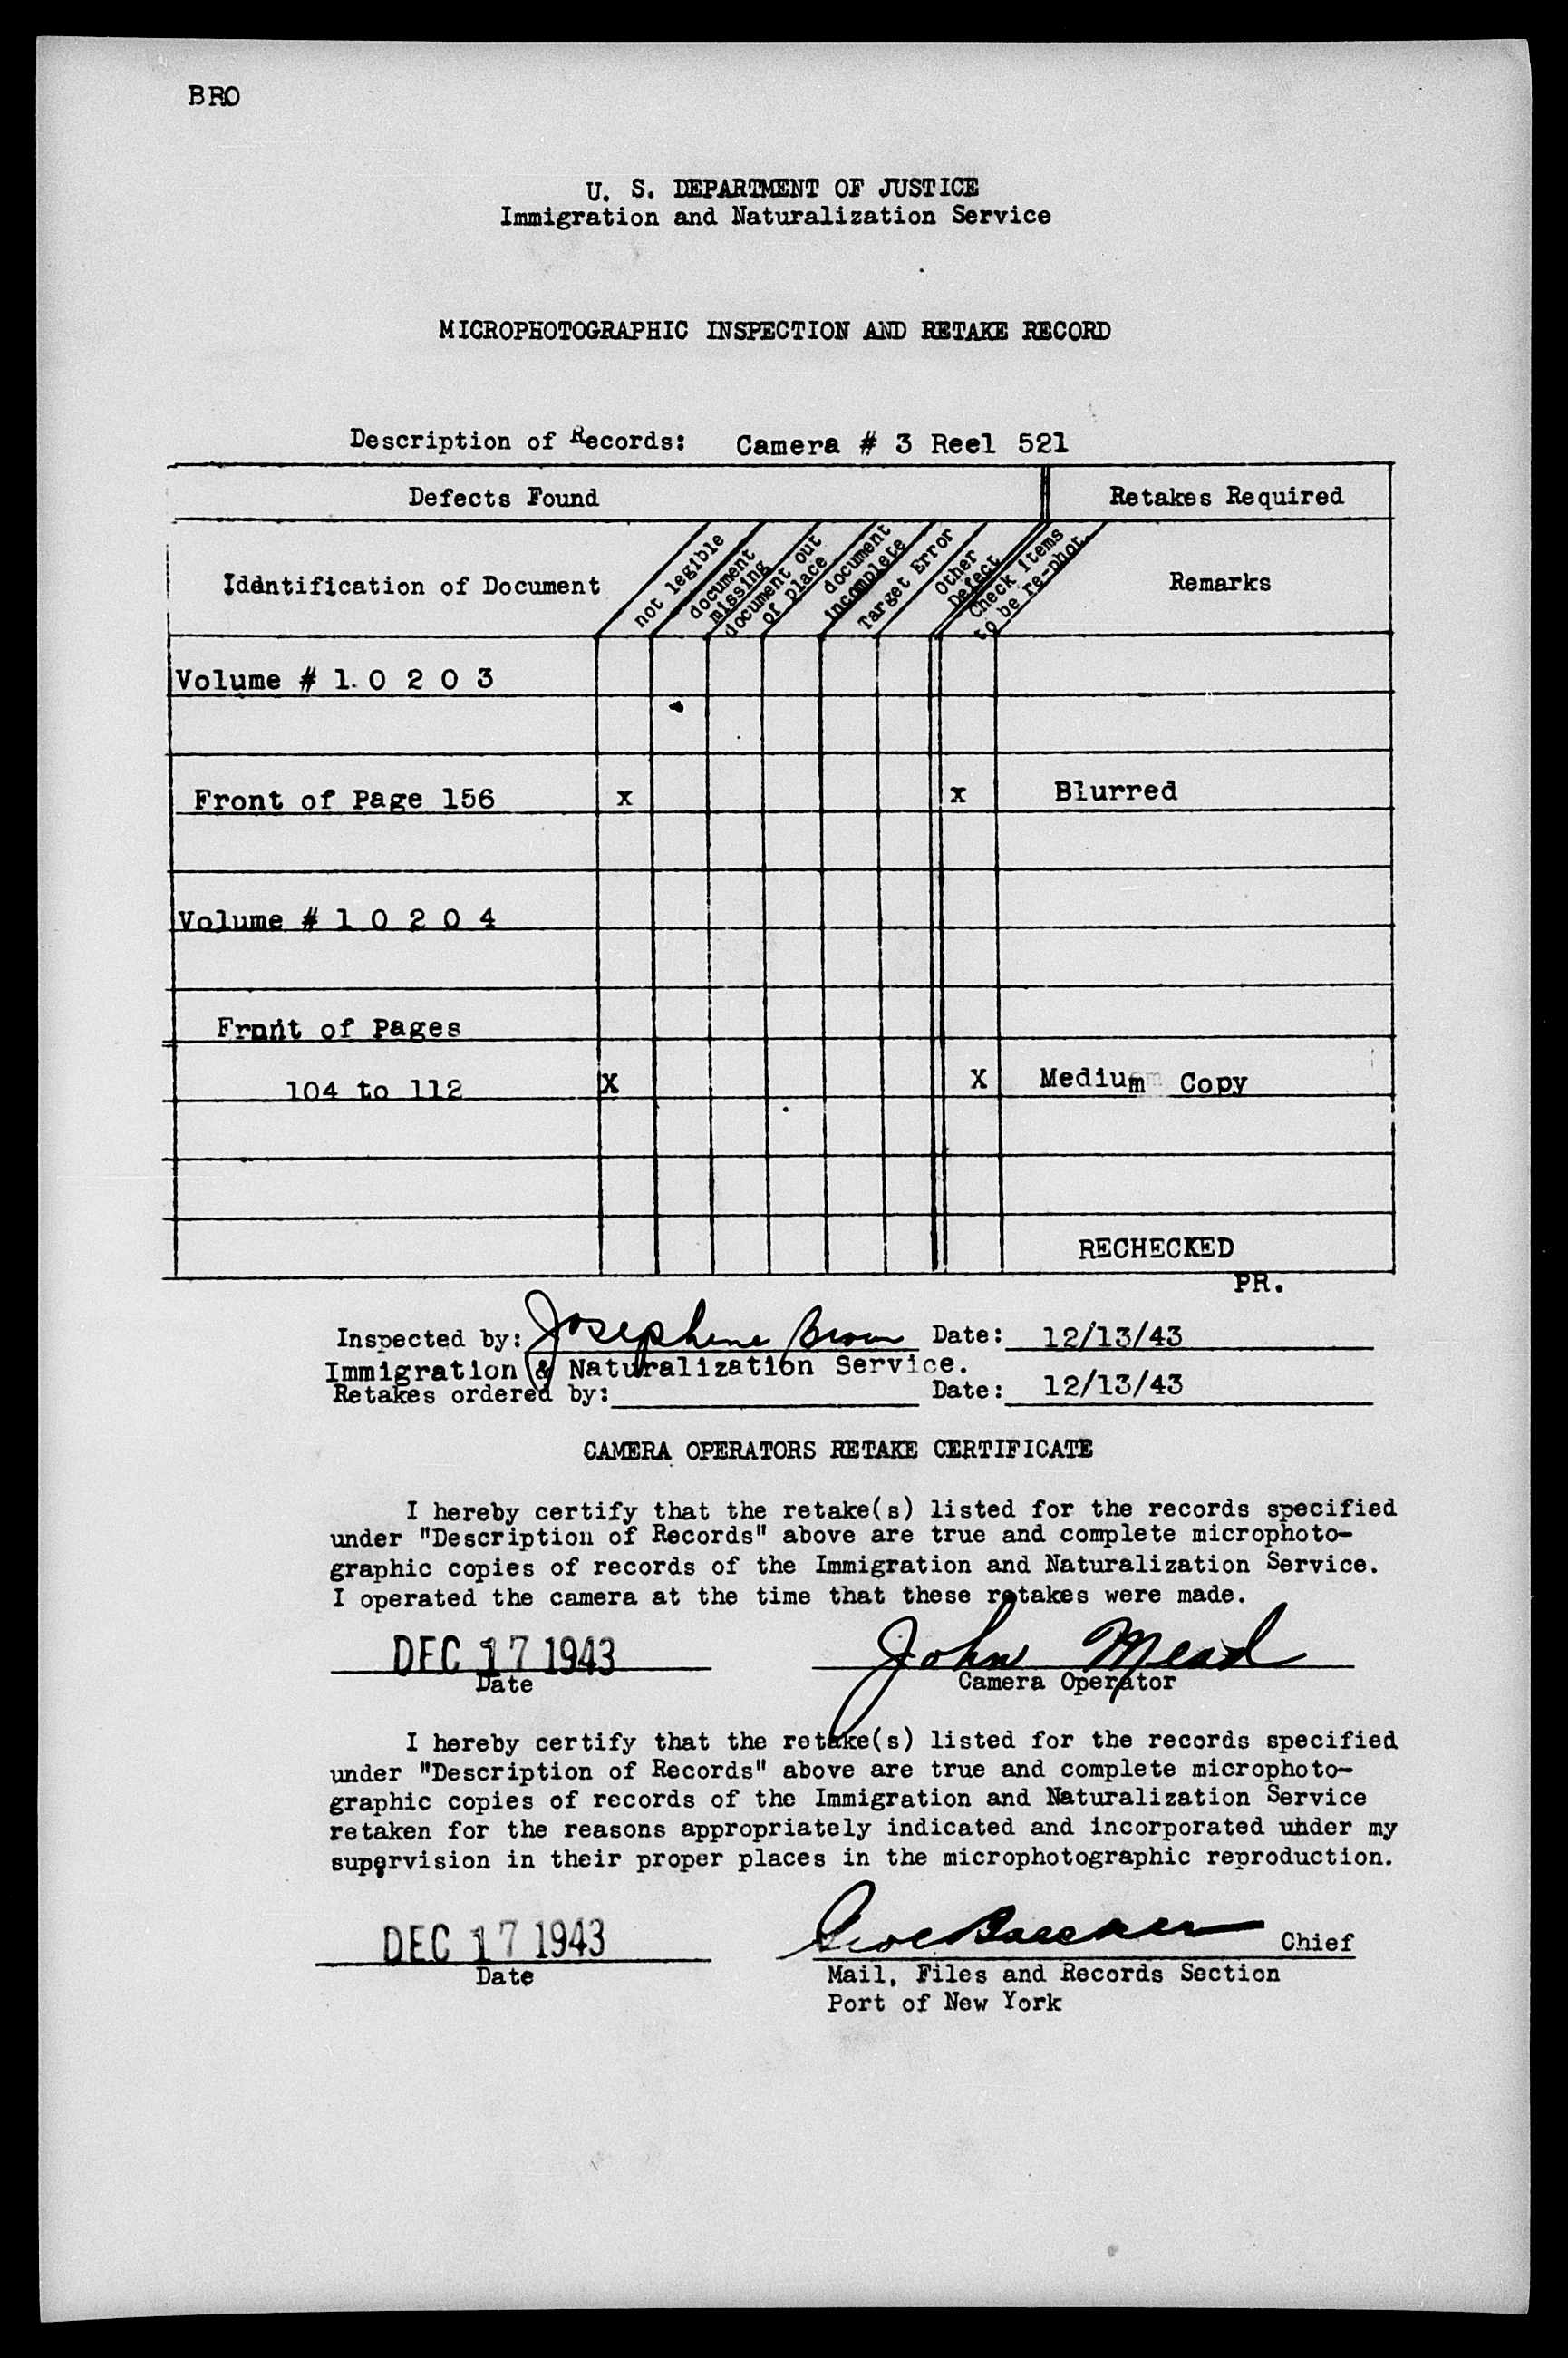 BRO
U. S. DEPARTMENT OF JUSTICE
Immigration and Naturalization Service
MICROPHOTOGRAPHIC INSPECTION AND RETAKE RECORD
Description of Records: Camera # 3 Reel 521
Defects Found Retakes Required
Identification of Document
not legible
document
missing
document out
of place
document
incomplete
Target Error
Other
Defect
Check items
to be re-phot.
Remarks
Volume # 1 0 2 0 3
Front of Page 156 x x Blurred
Volume # 1 0 2 0 4
Front of Pages
104 to 112 X X Medium Copy
RECHECKED
PR.
Inspected by: Josephine Brown Date: 12/13/43
Immigration & Naturalization Service.
Retakes ordered by: Date: 12/13/43
CAMERA OPERATORS RETAKE CERTIFICATE
I hereby certify that the retake(s) listed for the records specified
under "Description of Records" above are true and complete microphoto-
graphic copies of records of the Immigration and Naturalization Service.
I operated the camera at the time that these retakes were made.
DEC 17 1943 John Mead
Date Camera Operator
I hereby certify that the retake(s) listed for the records specified
under "Description of Records" above are true and complete microphoto-
graphic copies of records of the Immigration and Naturalization Service
retaken for the reasons appropriately indicated and incorporated under my
supervision in their proper places in the microphotographic reproduction.
DEC 17 1943 Chief
Date Mail, Files and Records Section
Port of New York